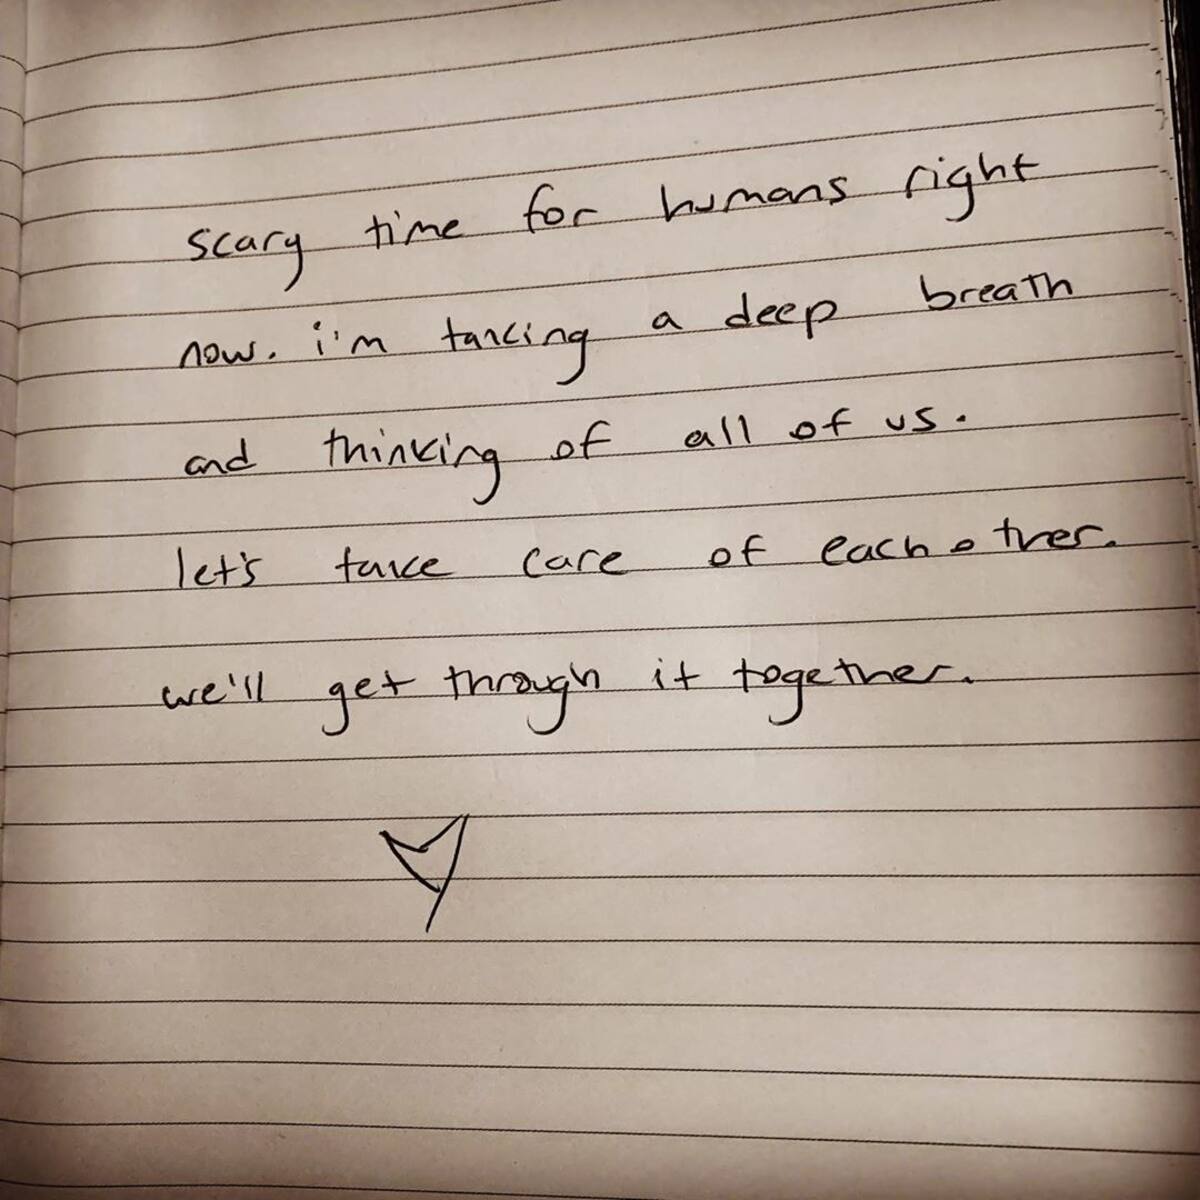 scary time for humans right
now. i'm taking a deep breath
and thinking of all of us.
let's take care of each other.
we'll get through it together.